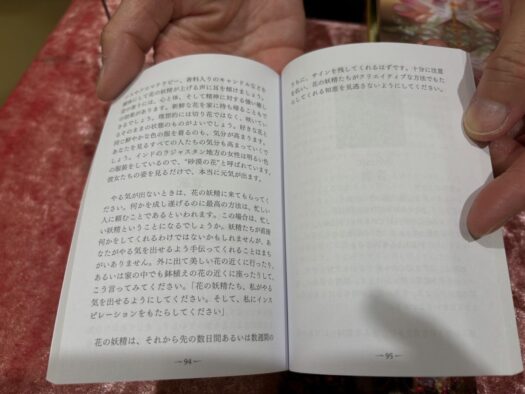 やアロマテラピー、香料入りのキャンドルなどを
媒体にして花の妖精が上げる声に耳を傾けましょう。
花の香りには、心と体、そして精神に対する強い癒し
の効果があります。新鮮な花を家に持ち帰ることもで
きるでしょう。理想的には切り花ではなく、咲いてい
るそのままの状態のものがよいでしょう。好きな花と
同じ鮮やかな色の服を着るのも、気分が高まります。
あなたを見るすべての人たちの気分も高まっていくで
しょう。インドのラジャスタン地方の女性は明るい色
の服装をしているので、“砂漠の花”と呼ばれています。
彼女たちの姿を見るだけで、本当に元気が出ます。
やる気が出ないときは、花の妖精に来てもらってく
ださい。何かを成し遂げるのに最高の方法は、忙しい
人に頼むことであるといわれます。この場合は、忙し
い妖精ということになるでしょうか。妖精たちが直接
何かをしてくれるわけではないかもしれませんが、あ
なたがやる気を出せるよう手伝ってくれることはまち
がいありません。外に出て美しい花の近くに行ったり、
あるいは家の中でも鉢植えの花の近くに座ったりして、
こう言ってみてください。「花の妖精たち、私がやる
気を出せるようにしてください。そして、私にインス
ピレーションをもたらしてください」
花の妖精は、それから先の数日間あるいは数週間の
—94—
うちに、サインを残してくれるはずです。十分に注意
を払い、花の妖精たちがクリエイティブな方法でもた
らしてくれる知恵を見逃さないようにしてください。
—95—